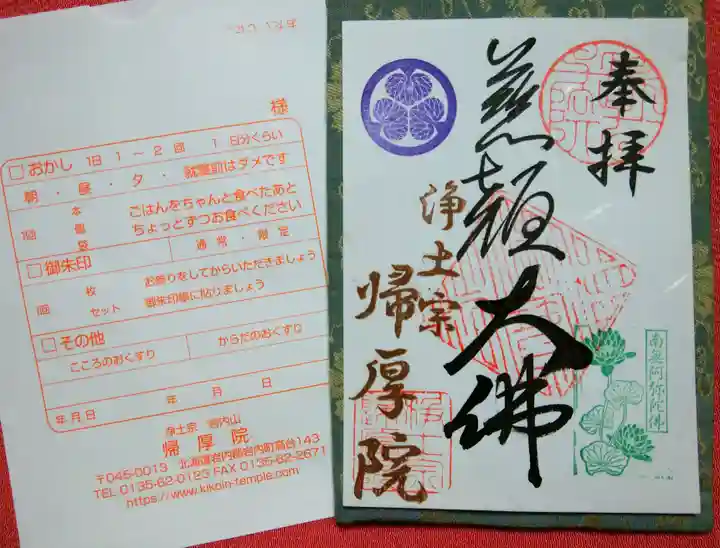 様
□ おかし 1日 1 ～ 2 回 1 日分くらい
朝 ・ 昼 ・ 夕 ・ 就寝前はダメです
1回 本 個 袋
ごはんをちゃんと食べたあと
ちょっとずつお食べください
通常 ・ 限定
□ 御朱印
1回 枚 セット
お参りをしてからいただきましょう
御朱印帳に貼りましょう
□ その他
こころのおくすり からだのおくすり
年月日 年 月 日
浄土宗 岩内山
帰厚院
〒045-0013 北海道岩内郡岩内町高台143
TEL 0135-62-0123 FAX 0135-62-2671
https://www.kikoin-temple.com/
奉拝
大佛
浄土宗
帰厚院
南無阿弥陀佛